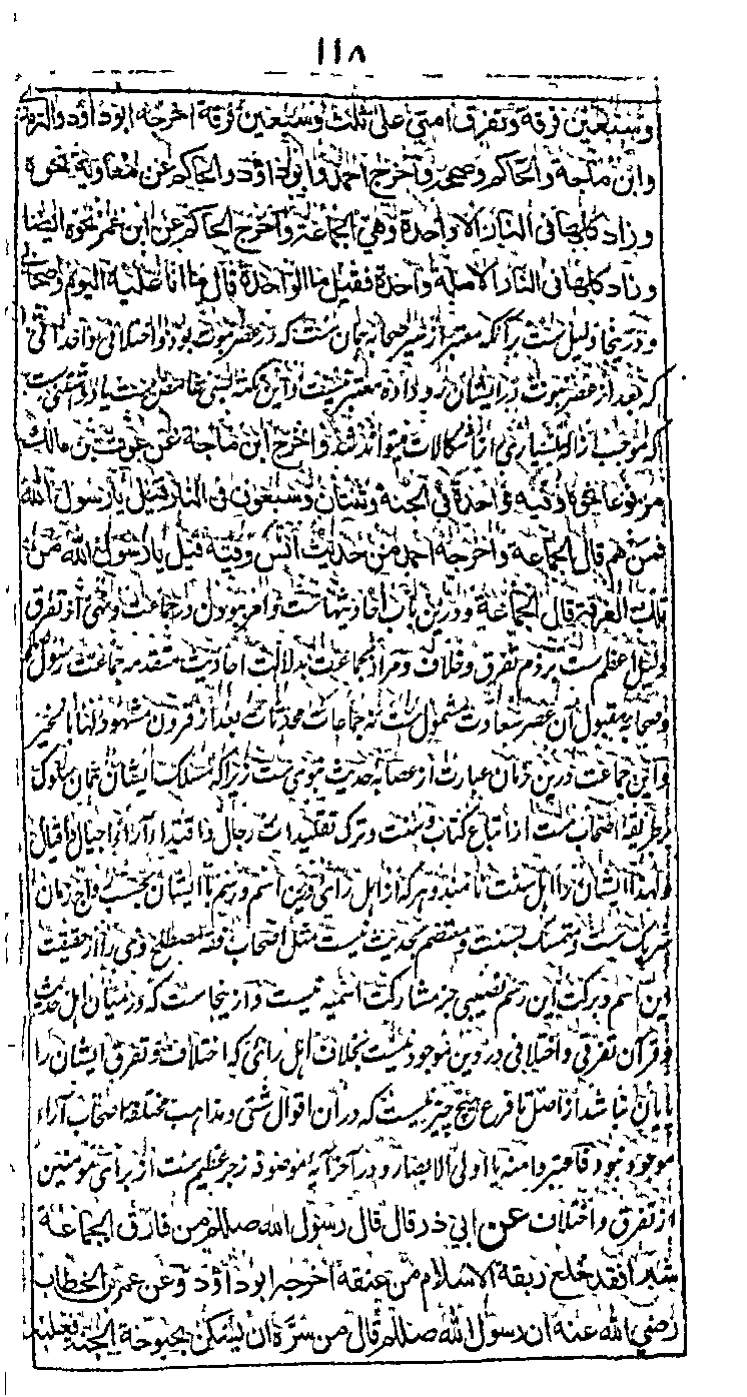 ۱۱۸
وسبعين فرقة وتفرق امتي على ثلث وسبعين فرقة اخرجه ابو داؤد والترمذ
وابن ماجة والحاكم وصححه وآخرج احمد وابو داؤد والحاكم عن معاوية نحوه
وزاد كلها فى النار الا واحدة وهي الجماعة وآخرج الحاكم عن ابن عمر نحوه ايضا
وزاد كلها فى النار الا ملة واحدة فقيل ما الواحدة قال ما انا عليه اليوم واصحابي
ودرینجا دلیل ست برآنکه معتبر از سیر صحابه همان ست که در عصر نبوت بود و اختلافی
که بعد از عصر نبوت در ایشان رو داده معتبر نیست و این نکته
که موجب ازاله بسیاری از اشکالات میتواند شد وآخرج ابن ماجة عن عوف بن مالك
مرفوعا نحوه وفيه فواحدة في الجنة وثنتان وسبعون فى النار قيل يا رسول الله
فمن هم قال الجماعة وآخرجه احمد من حديث انس وفيه قيل يا رسول الله من
تلك الفرقة قال الجماعة ودرین باب احادیثهاست وامر ببودن در جماعت ونهی از تفرق
دلیل اعظم ست بر ذم تفرق وخلاف ومراد بجماعت بدلالت احادیث متقدمه جماعت رسول
وصحابه مقبول آن عصر سعادت شمول ست نه جماعات محدثات بعد از قرون مشهود لها بالخیر
واین جماعت درین زمان عبارت از عصابهٔ حدیث نبوی ست زیرا که مسلک ایشان همان سلوک
طریقه اصحاب ست از اتباع کتاب وسنت وترک تقلیدات رجال واقتداء آراء اجیال اقیال
ولهذا ایشان را اهل سنت نامند وهر که از اهل رای درین اسم ورسم با ایشان بحسب رواج زمان
شریک ست ومتمسک بسنت ومعتصم بحدیث نیست مثل اصحاب فقه مصطلح وی را از حقیقت
این اسم وبرکت این رسم نصیبی جز مشارکت اسمیه نیست وازینجاست که در میان اهل حدیث
وقرآن تفرقی واختلافی در دین موجود نیست بخلاف اهل رای که اختلاف وتفرق ایشان را
پایان نباشد از اصل تا فرع هیچ چیز نیست که در آن اقوال شتی ومذاهب مختلفه اصحاب آراء
موجود نبود فاعتبروا منه یا اولی الابصار ودر آخر آیه موضوفه زجر عظیم ست از برای مومنین
از تفرق واختلاف عن ابي ذر قال قال رسول الله صللم من فارق الجماعة
شبرا فقد خلع ربقة الاسلام من عنقه اخرجه ابو داؤد وعن عمر بن الخطاب
رضي الله عنه ان رسول الله صللم قال من سره ان يسكن بحبوحة الجنة فعليه